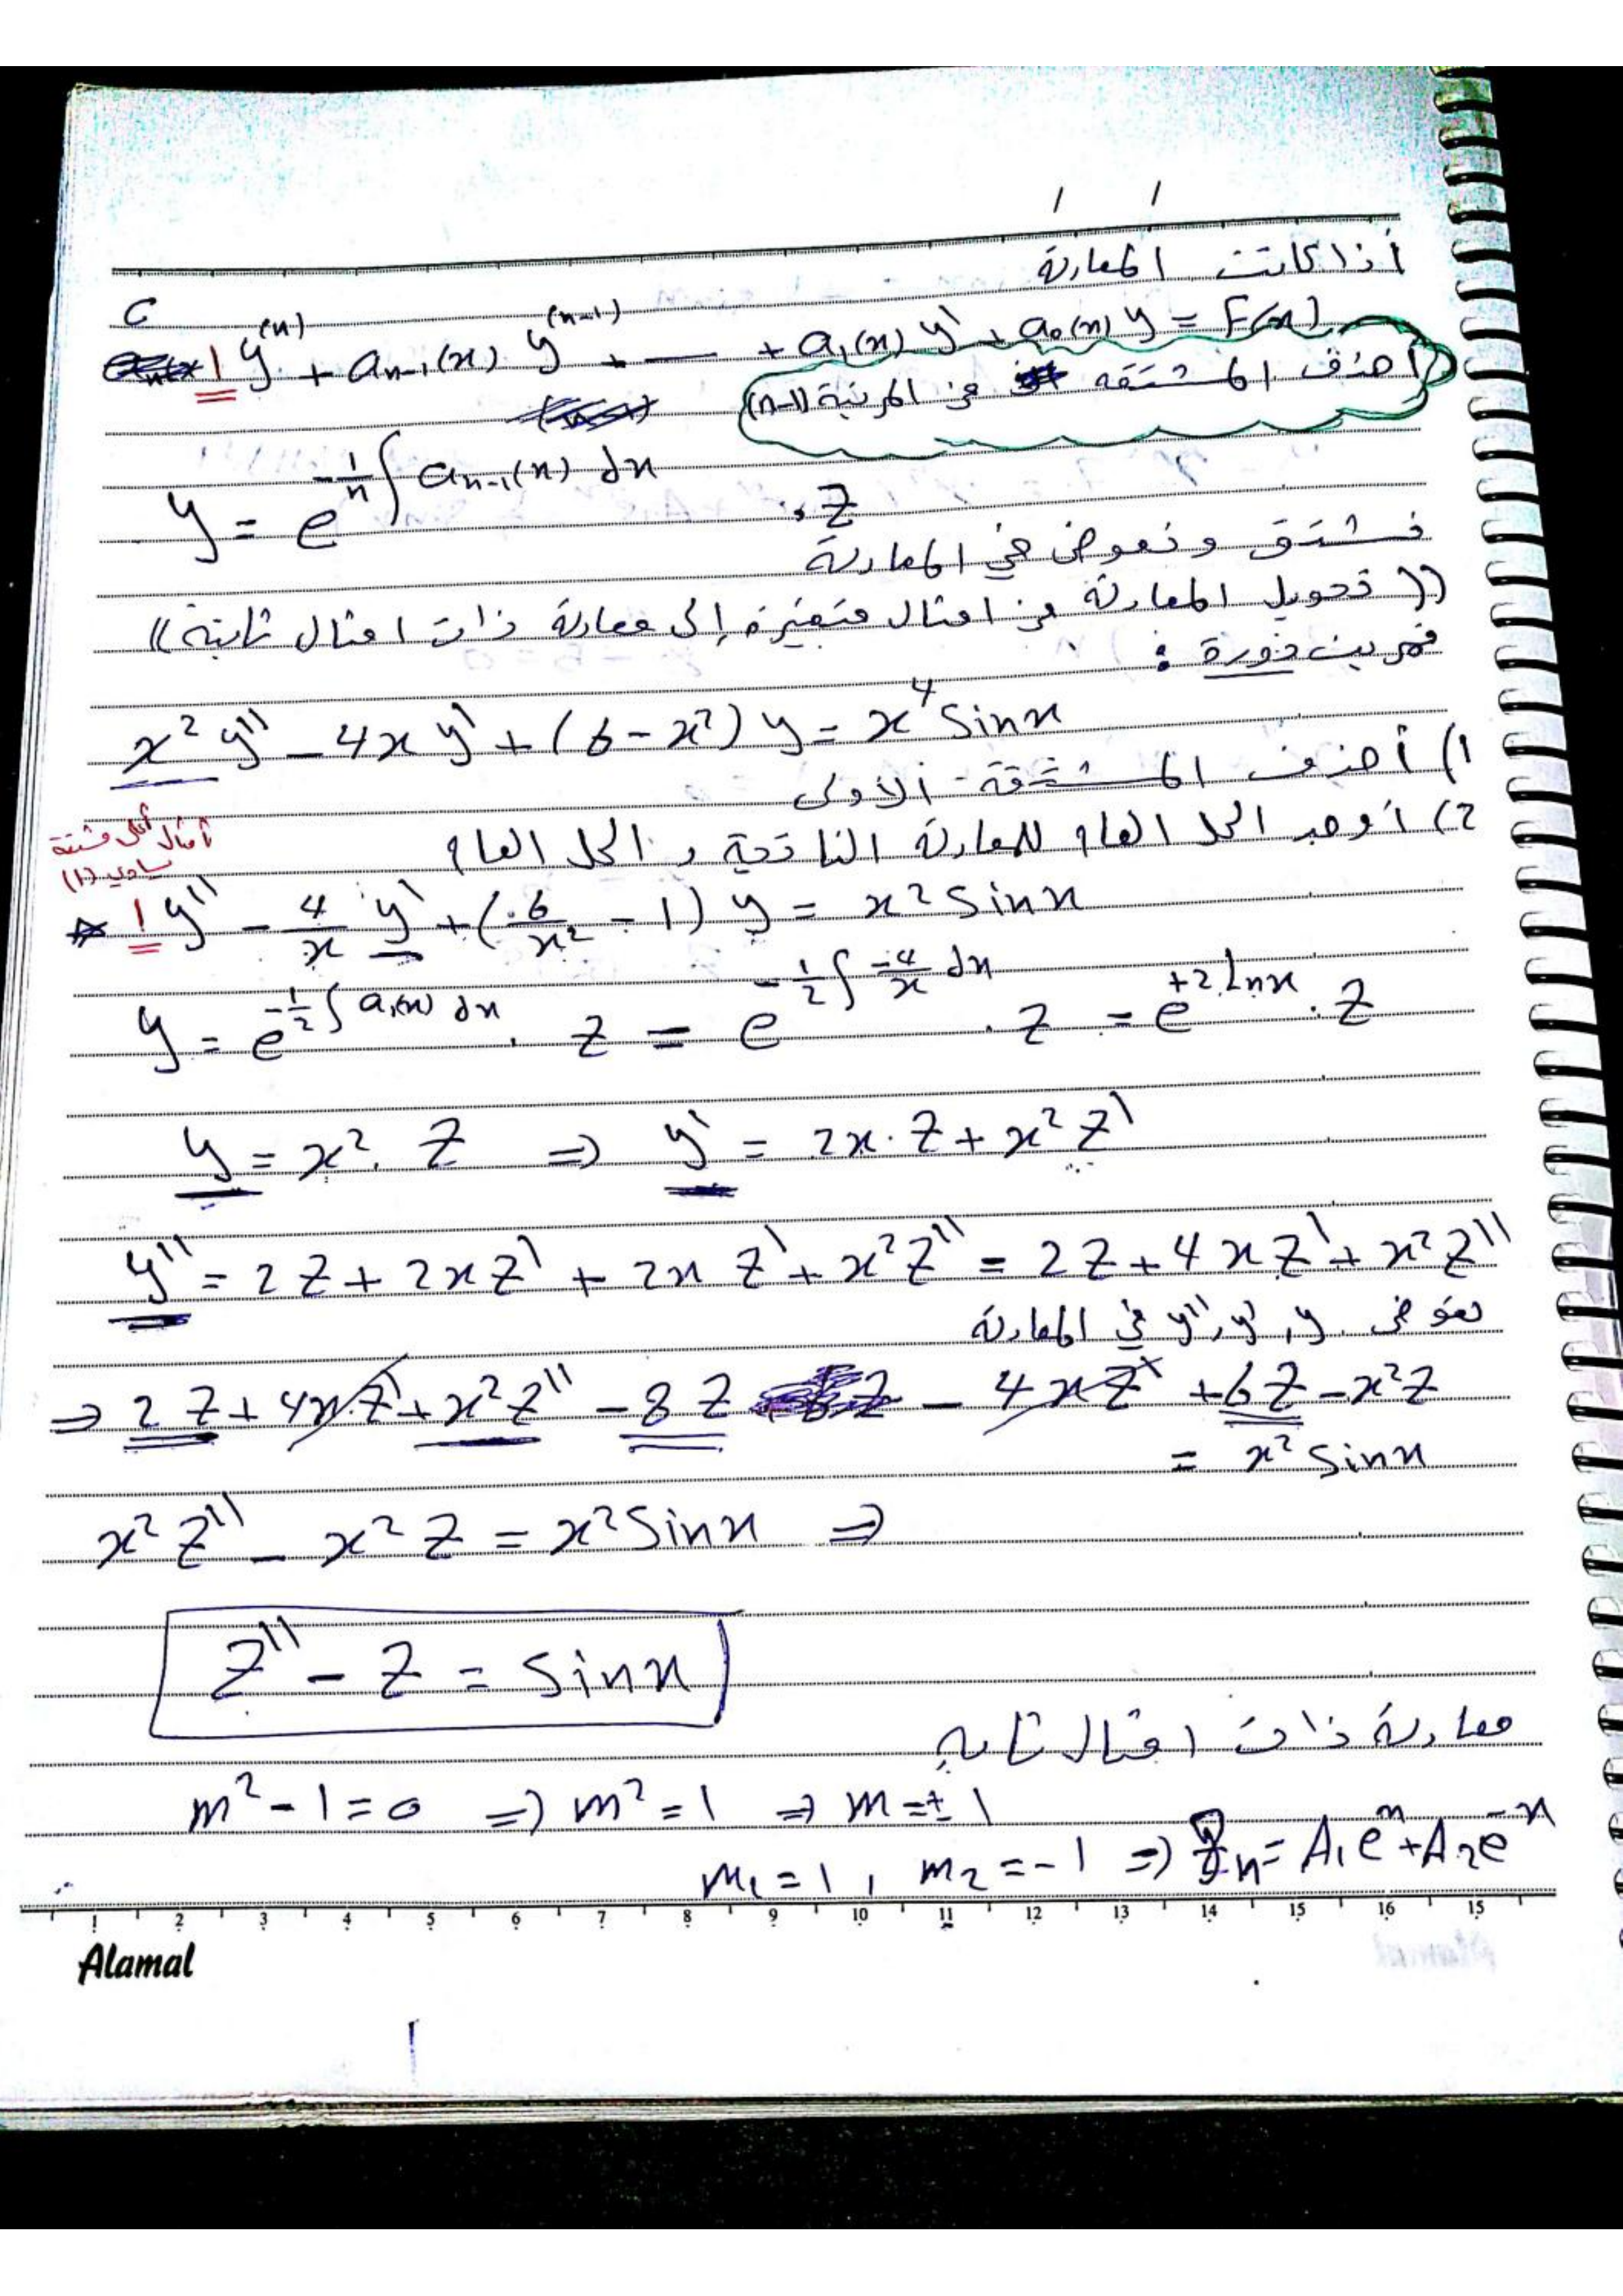 / /
أذا كانت المعادلة
1 y⁽ⁿ⁾ + aₙ₋₁(x) y⁽ⁿ⁻¹⁾ + — + a₁(x) y' + a₀(x) y = F(x)
أحذف المشتقه من المرتبة (n-1)
y = e^{-1/n ∫ aₙ₋₁(x) dx} . Z
نشتق ونعوض في المعادلة
(( تحويل المعادلة من امثال متغيرة إلى معادلة ذات امثال ثابتة ))
تمرين دورة :
x² y'' - 4x y' + (6 - x²) y = x⁴ sin x
1) أحذف المشتقة الأولى
2) أوجد الحل العام للمعادلة الناتجة و الحل العام
أمثال أعلى مشتقة
يساوي (1)
* 1 y'' - 4/x y' + (6/x² - 1) y = x² sin x
y = e^{-1/2 ∫ a₁(x) dx} . Z = e^{-1/2 ∫ -4/x dx} . Z = e^{+2 Ln x} . Z
y = x² . Z ⇒ y' = 2x . Z + x² Z'
y'' = 2Z + 2x Z' + 2x Z' + x² Z'' = 2Z + 4x Z' + x² Z''
نعوض y , y' , y'' في المعادلة
⇒ 2Z + 4x Z' + x² Z'' - 8Z - 4x Z' + 6Z - x² Z
= x² sin x
x² Z'' - x² Z = x² sin x ⇒
Z'' - Z = sin x
معادلة ذات امثال ثابته
m² - 1 = 0 ⇒ m² = 1 ⇒ m = ± 1
m₁ = 1 , m₂ = -1 ⇒ Zₕ = A₁ eˣ + A₂ e⁻ˣ
1 2 3 4 5 6 7 8 9 10 11 12 13 14 15 16 15
Alamal